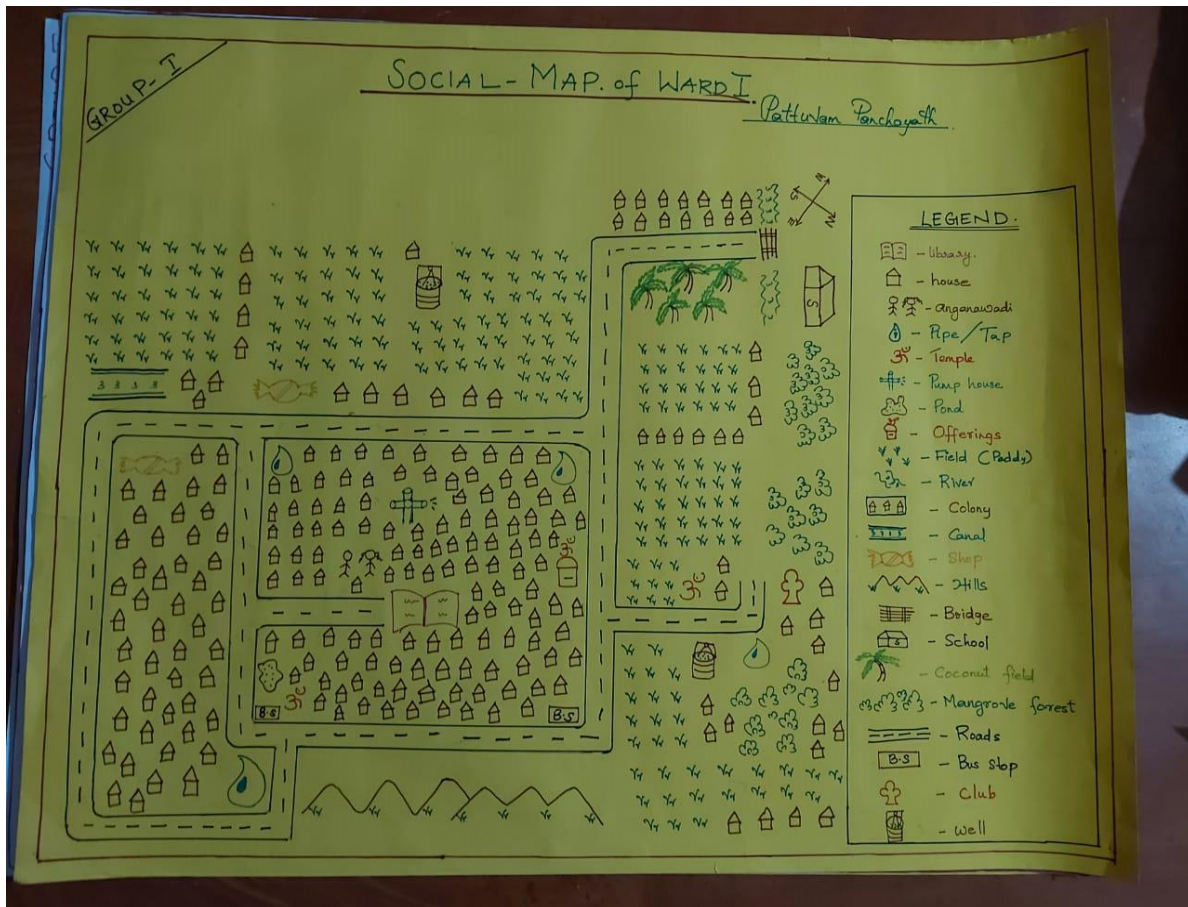 GROUP- I
SOCIAL - MAP. of WARD I.
Pattuvam Panchayath
S
LEGEND.
- library.
- house
- anganawadi
- Pipe/Tap
ॐ - Temple
- Pump house
- Pond
- Offerings
- Field (Paddy)
- River
- Colony
- Canal
- Shop
- Hills
- Bridge
S - School
- Coconut field
- Mangrove forest
- Roads
B.S - Bus stop
- Club
- well
ॐ
ॐ
ॐ
B.S
B.S